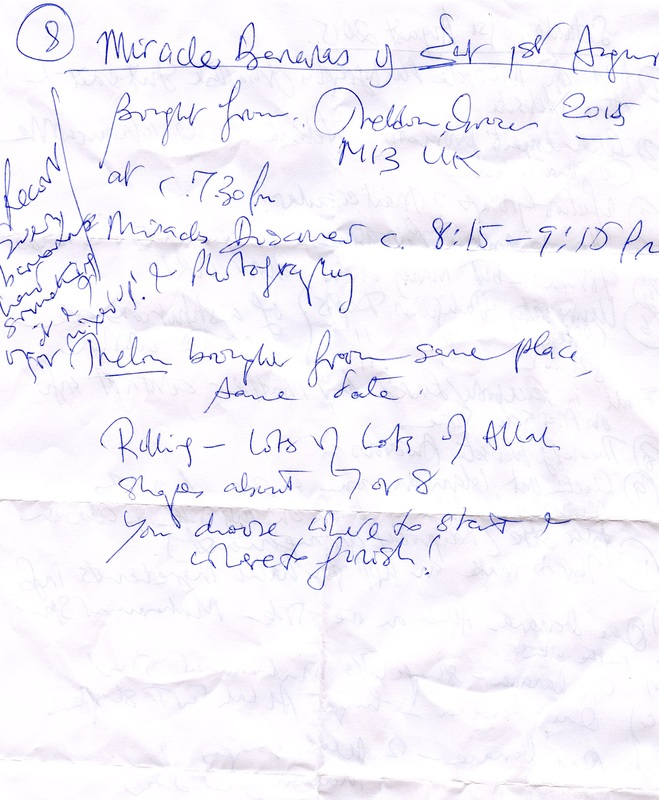 8
Miracle Bananas of Sat 1st August
2015
Bought from
M13 UK
at c. 7.30 pm
Miracles Discover c. 8:15 – 9:15 pm
& Photography
Record
every
banana
have
something
Melon bought from same place,
same date.
Rolling – Lots of Lots of Allah
shapes about 7 or 8
You choose where to start &
where to finish!